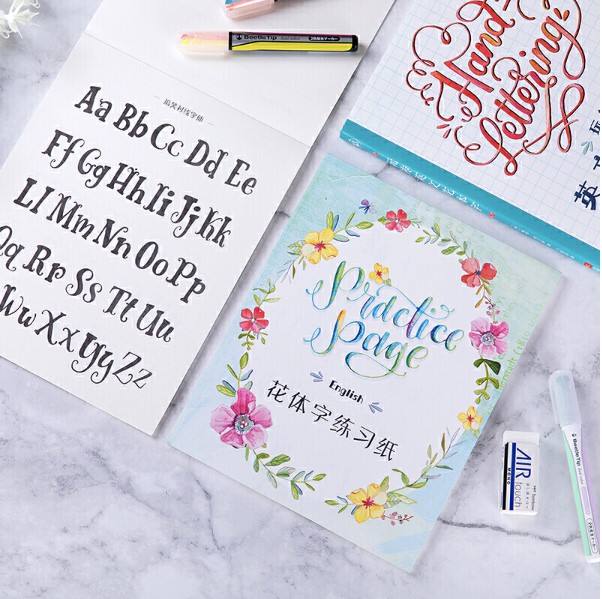 BeetleTip
Aa Bb Cc Dd Ee
Ff Gg Hh Ii Jj Kk
Ll Mm Nn Oo Pp
Qq Rr Ss Tt Uu
Ww Xx Yy Zz
Hand
Lettering
英
Practice
Page
English
花体字练习纸
AIR
touch
BeetleTip